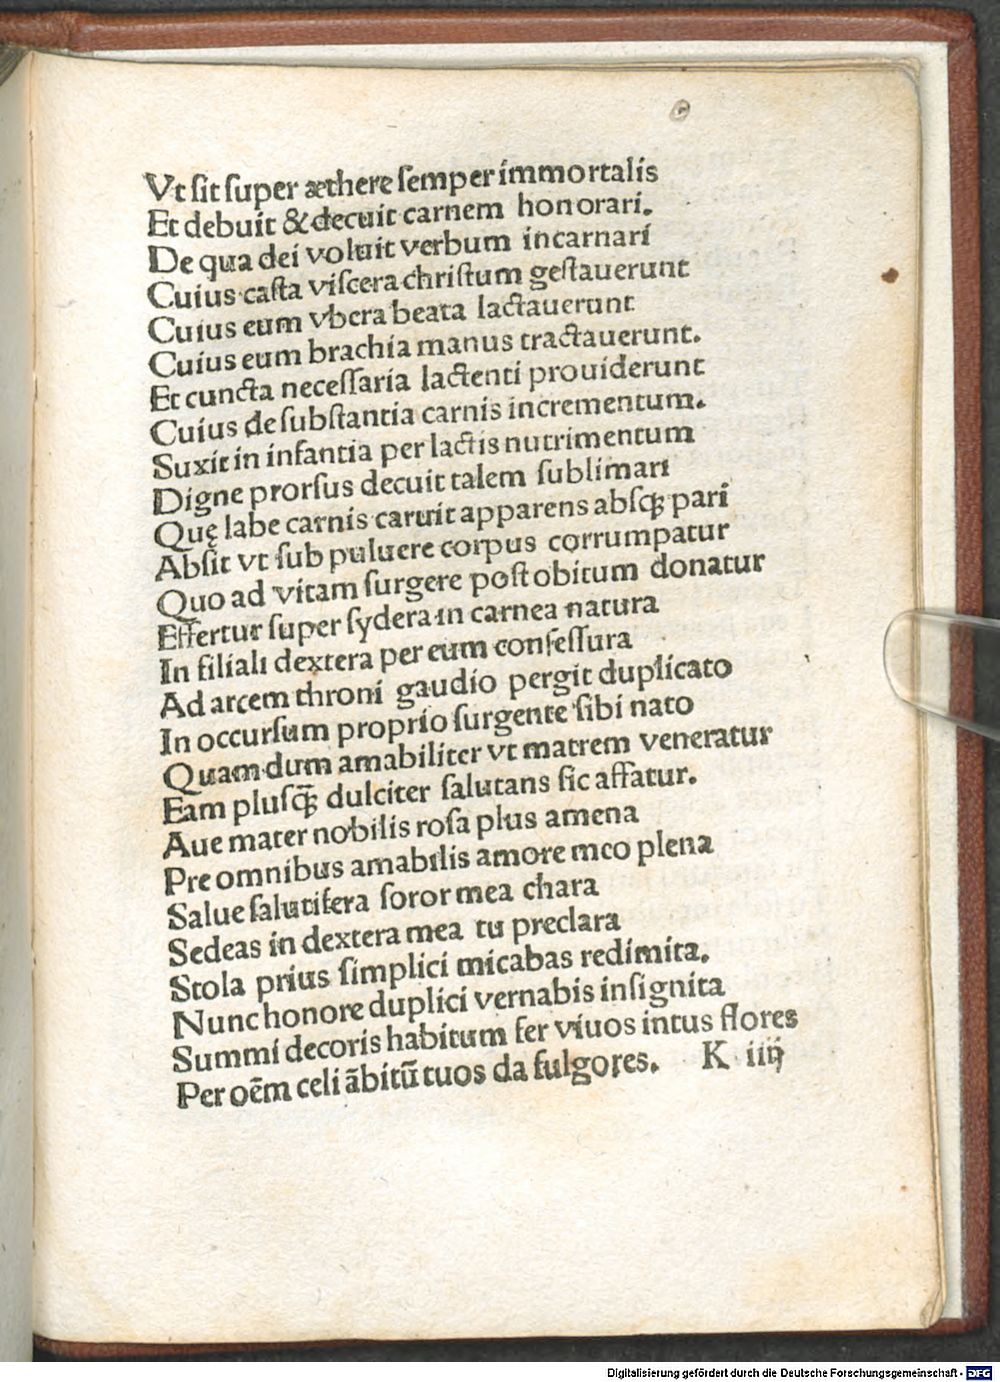 Vt ſit ſuper æthere ſemper immortalis
Et debuit & decuit carnem honorari.
De qua dei voluit verbum incarnari
Cuius caſta viſcera chriſtum geſtauerunt
Cuius eum vbera beata lactauerunt
Cuius eum brachia manus tractauerunt.
Et cuncta neceſſaria lactenti prouiderunt
Cuius de ſubſtantia carnis incrementum.
Suxit in infantia per lactis nutrimentum
Digne prorſus decuit talem ſublimari
Quę labe carnis caruit apparens abſqꝫ pari
Abſit vt ſub puluere corpus corrumpatur
Quo ad vitam ſurgere poſt obitum donatur
Effertur ſuper ſydera in carnea natura
In filiali dextera per eum conſeſſura
Ad arcem throni gaudio pergit duplicato
In occurſum proprio ſurgente ſibi nato
Quam dum amabiliter vt matrem veneratur
Eam pluſq̃ꝫ dulciter ſalutans ſic affatur.
Aue mater nobilis roſa plus amena
Pre omnibus amabilis amore meo plena
Salue ſalutifera ſoror mea chara
Sedeas in dextera mea tu preclara
Stola prius ſimplici micabas redimita.
Nunc honore duplici vernabis inſignita
Summi decoris habitum fer viuos intus flores
Per oēm celi ābitū tuos da fulgores. K iiij
Digitalisierung gefördert durch die Deutsche Forschungsgemeinschaft - DFG